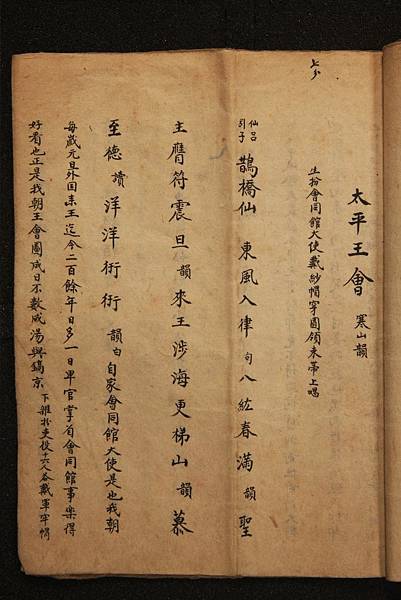 太平王會 寒山韻
生扮會同館大使戴紗帽穿圓領束帶上唱
仙呂引子 鵲橋仙 東風入律句八紘春滿韻聖
主膺符震旦韻來王涉海更梯山韻慕
至德讀洋洋衎衎韻白自家會同館大使是也我朝
每歲元旦外国來王迄今二百餘年日多一日卑官掌首會同館事樂得
好看也正是我朝王會圖成日不數成湯與鎬京 下雜扮更役十六人各戴軍牢帽